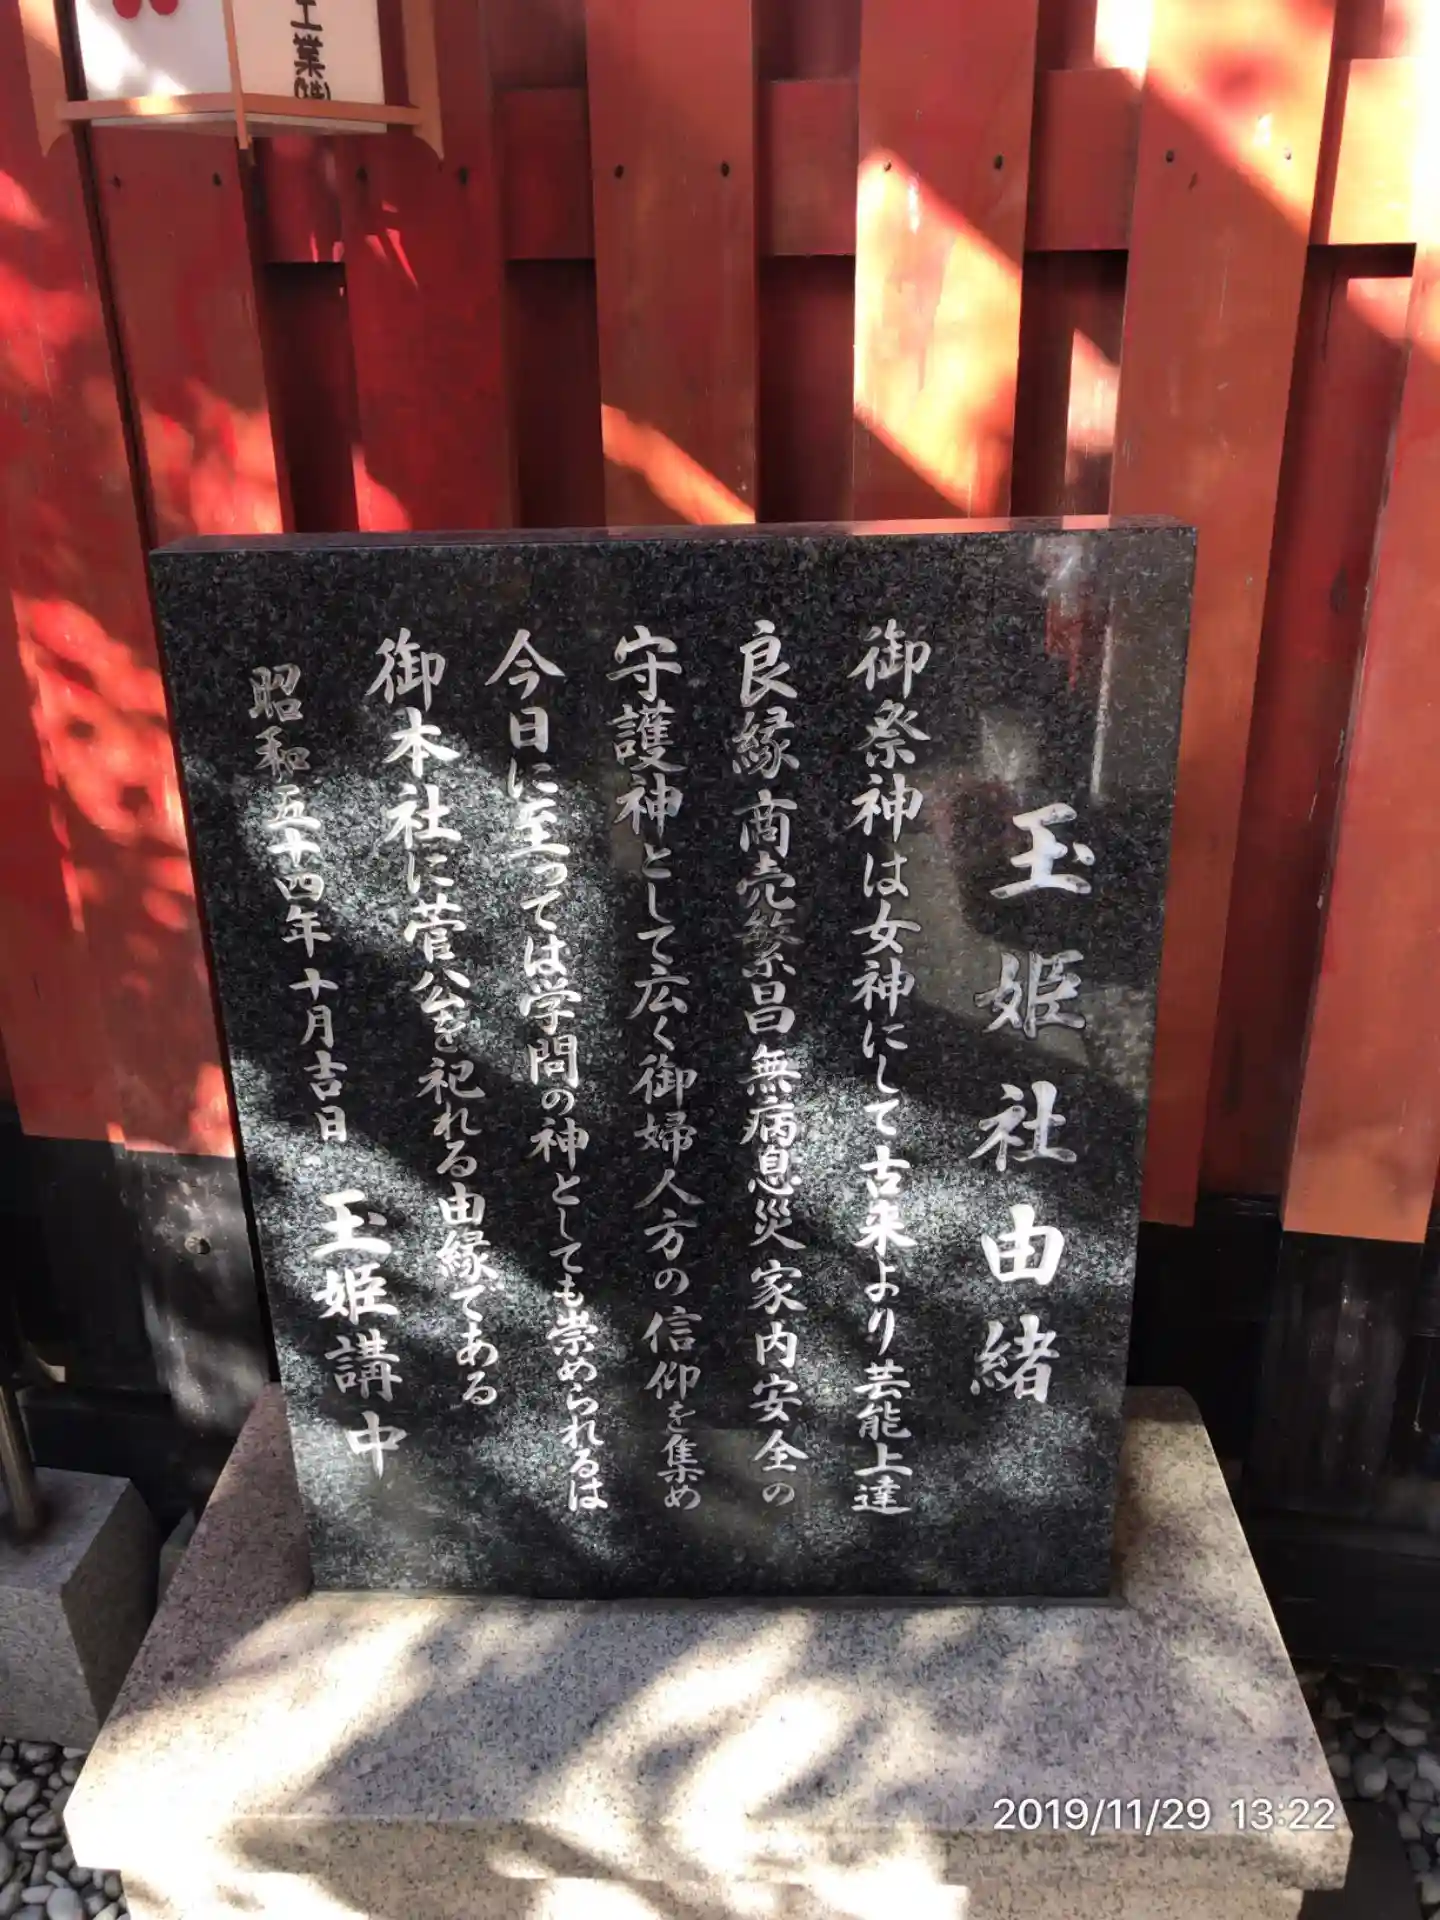 工業㈱
玉姫社由緒
御祭神は女神にして古来より芸能上達
良縁商売繁昌無病息災家内安全の
守護神として広く御婦人方の信仰を集め
今日に至っては学問の神としても崇められるは
御本社に菅公を祀れる由縁である
昭和五十四年十月吉日 玉姫講中
2019/11/29 13:22